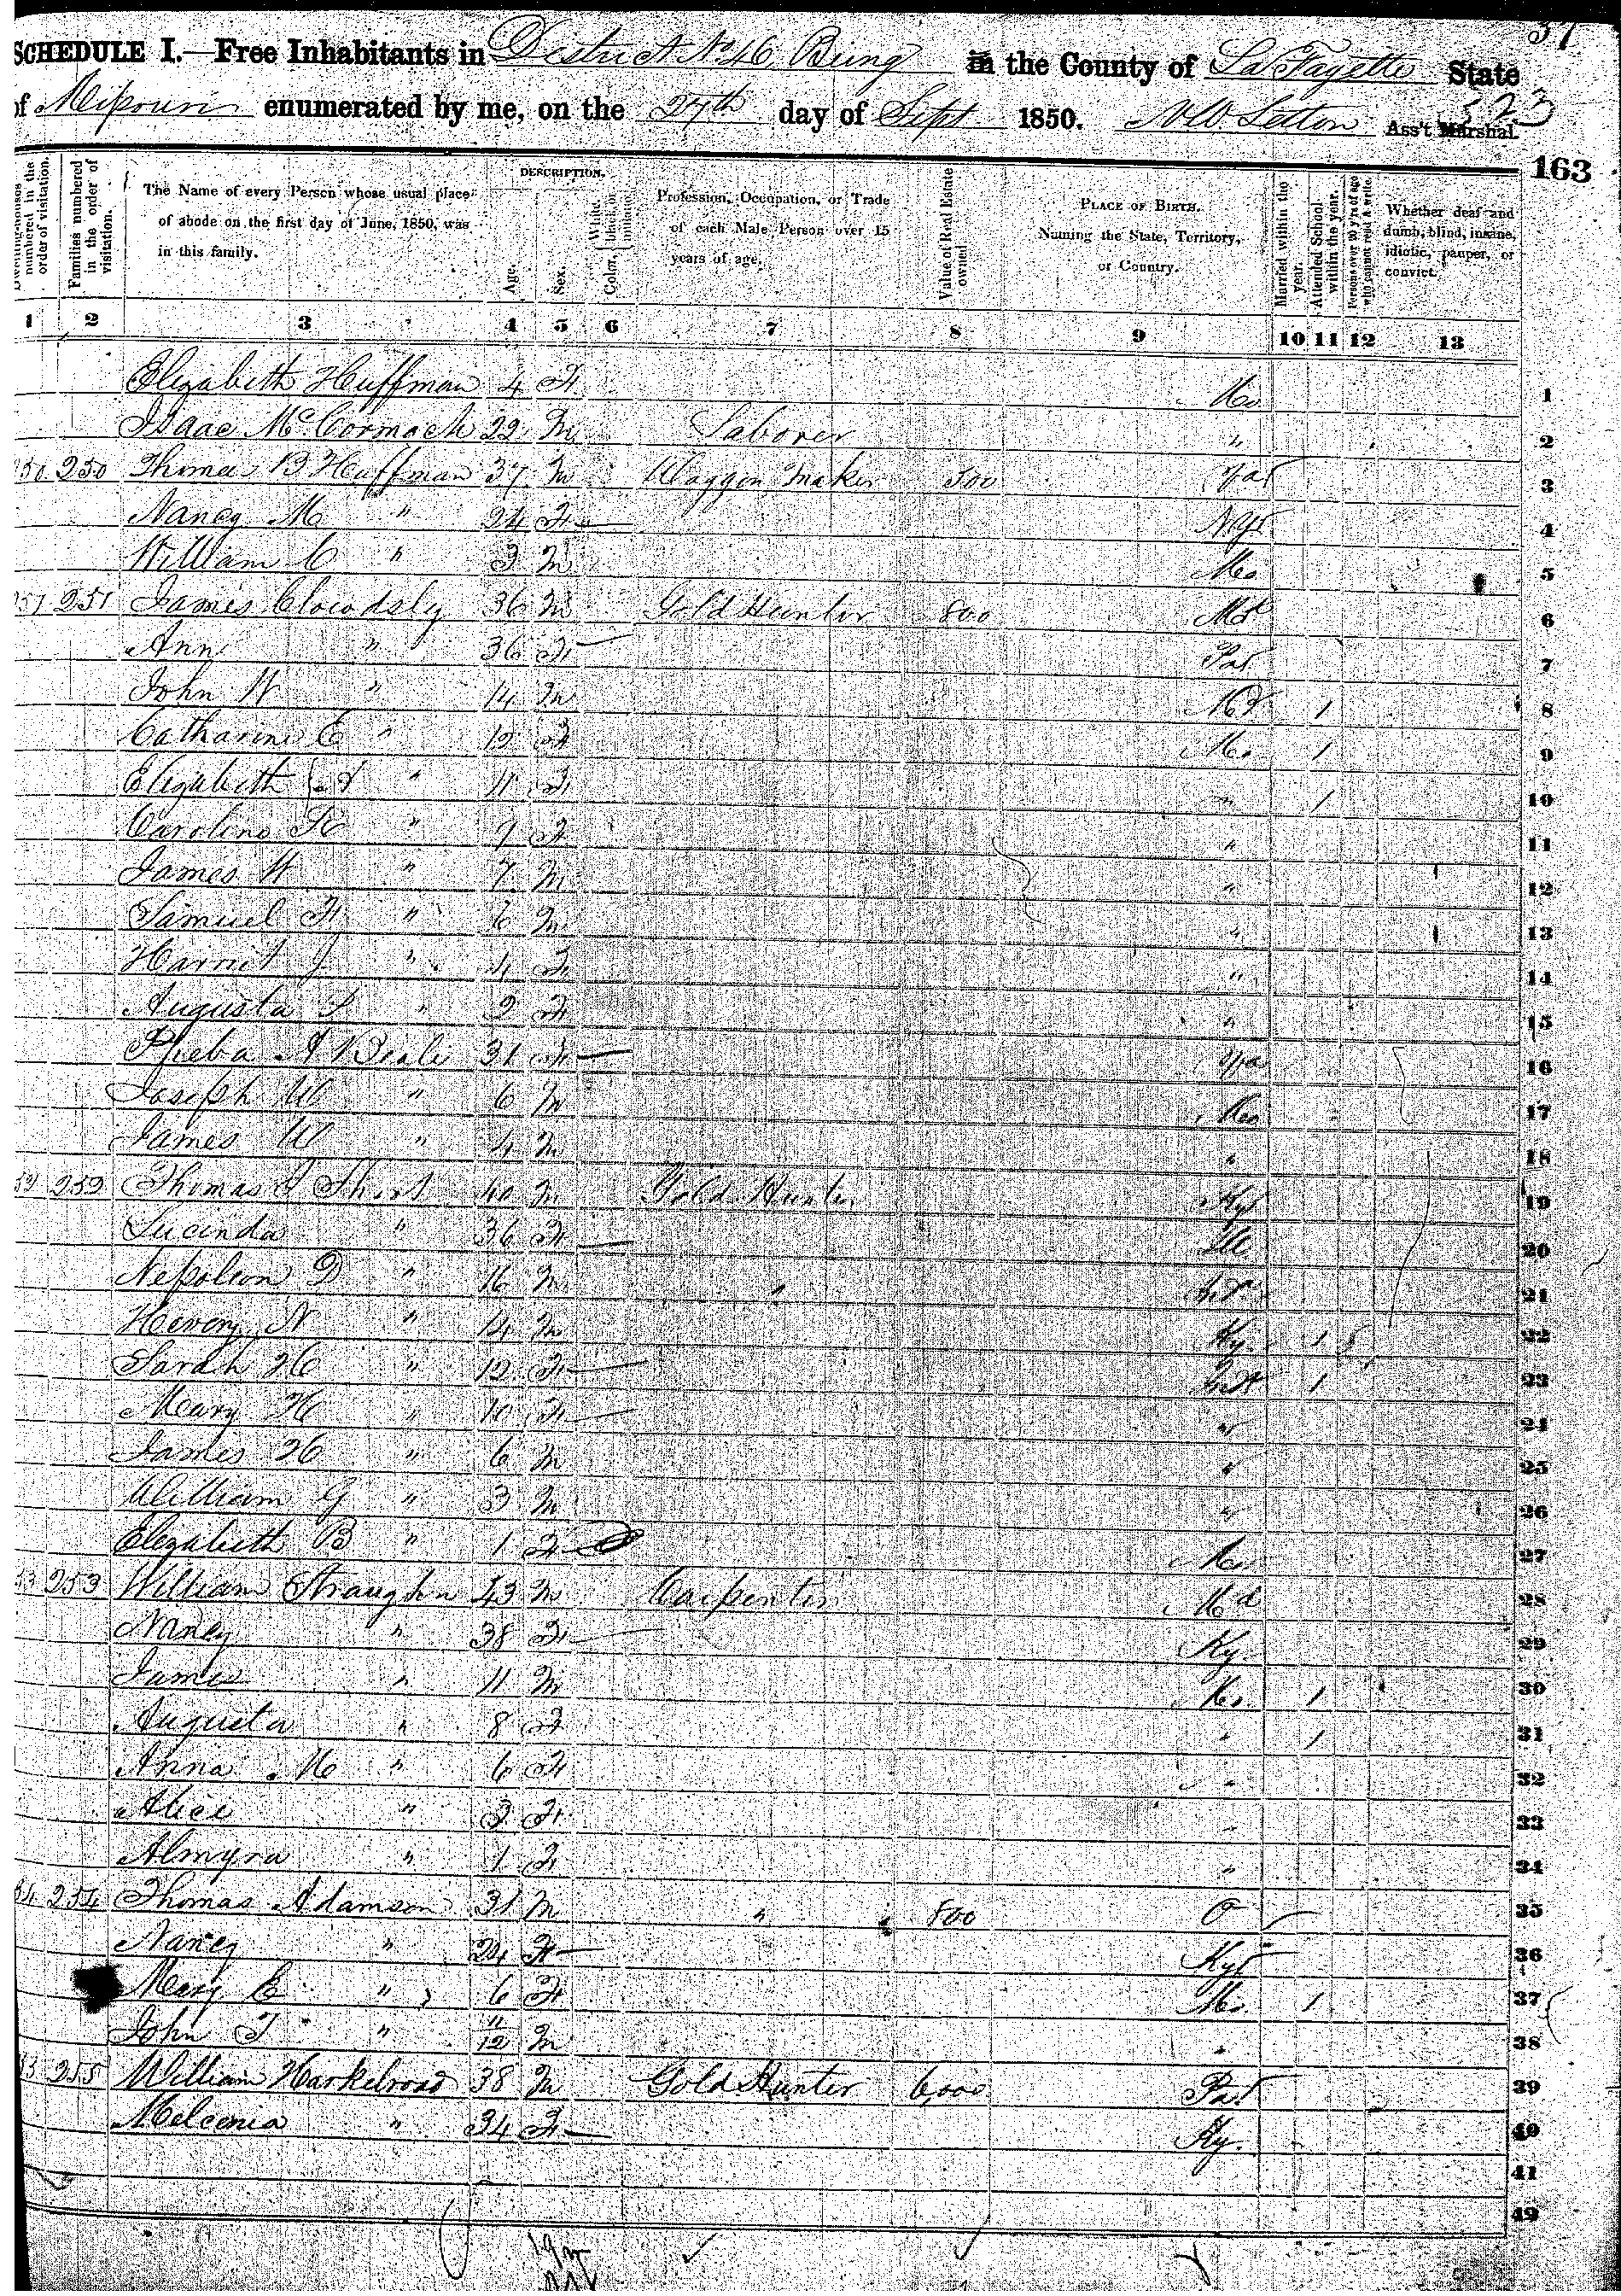 37
SCHEDULE I.—Free Inhabitants in District No 46 Being in the County of La Fayette State
of Missouri enumerated by me, on the 27th day of Sept 1850. N W Letton Ass't Marshal.
323
163
Dwelling-houses numbered in the order of visitation.
Families numbered in the order of visitation.
The Name of every Person whose usual place of abode on the first day of June, 1850, was in this family.
DESCRIPTION.
Age.
Sex.
Color, White, black, or mulatto.
Profession, Occupation, or Trade of each Male Person over 15 years of age.
Value of Real Estate owned.
PLACE OF BIRTH. Naming the State, Territory, or Country.
Married within the year.
Attended School within the year.
Persons over 20 y'rs of age who cannot read & write.
Whether deaf and dumb, blind, insane, idiotic, pauper, or convict.
1 2 3 4 5 6 7 8 9 10 11 12 13
Elizabeth Huffman 4 F Mo 1
Isaac McCormack 22 M Laborer " 2
250 250 Thomas B Huffman 37 M Waggon Maker 500 Va 3
Nancy M " 24 F 4
William C " 3 M Mo 5
251 251 James Clowdsly 36 M Gold Hunter 800 Md 6
Ann " 36 F Pa 7
John W " 14 M Md 1 8
Catharine E " 12 F Mo 1 9
Elizabeth " 11 F " 1 10
Caroline " 9 F " 11
James W " 7 M " 12
Samuel F " 6 M " 13
Harriet J " 4 F " 14
Augusta " 2 F " 15
Pheba A Beale 31 F Va 16
Joseph W " 6 M Mo 17
James W " 4 M " 18
52 252 Thomas J Short 40 M Gold Hunter Ky 19
Lucinda " 36 F Ill 20
Nepoleon D " 16 M " 21
Henery N " 14 M Ky 1 22
Sarah H " 12 F 1 23
Mary H " 10 F " 24
James H " 6 M " 25
William G " 3 M " 26
Elizabeth B " 1 F Mo 27
53 253 William Straughn 43 M Carpenter Md 28
Nancy " 38 F Ky 29
James " 11 M Mo 1 30
Augusta " 8 F " 1 31
Anna M " 6 F " 32
Alice " 3 F " 33
Almyra " 1 F " 34
54 254 Thomas Adamson 31 M " 800 O 35
Nancy " 24 F Ky 36
Mary E " 6 F Mo 1 37
John T " 11/12 M " 38
255 William Harkelroad 38 M Gold Hunter 6,000 Pa 39
Melcenia " 34 F Ky. 40
41
42